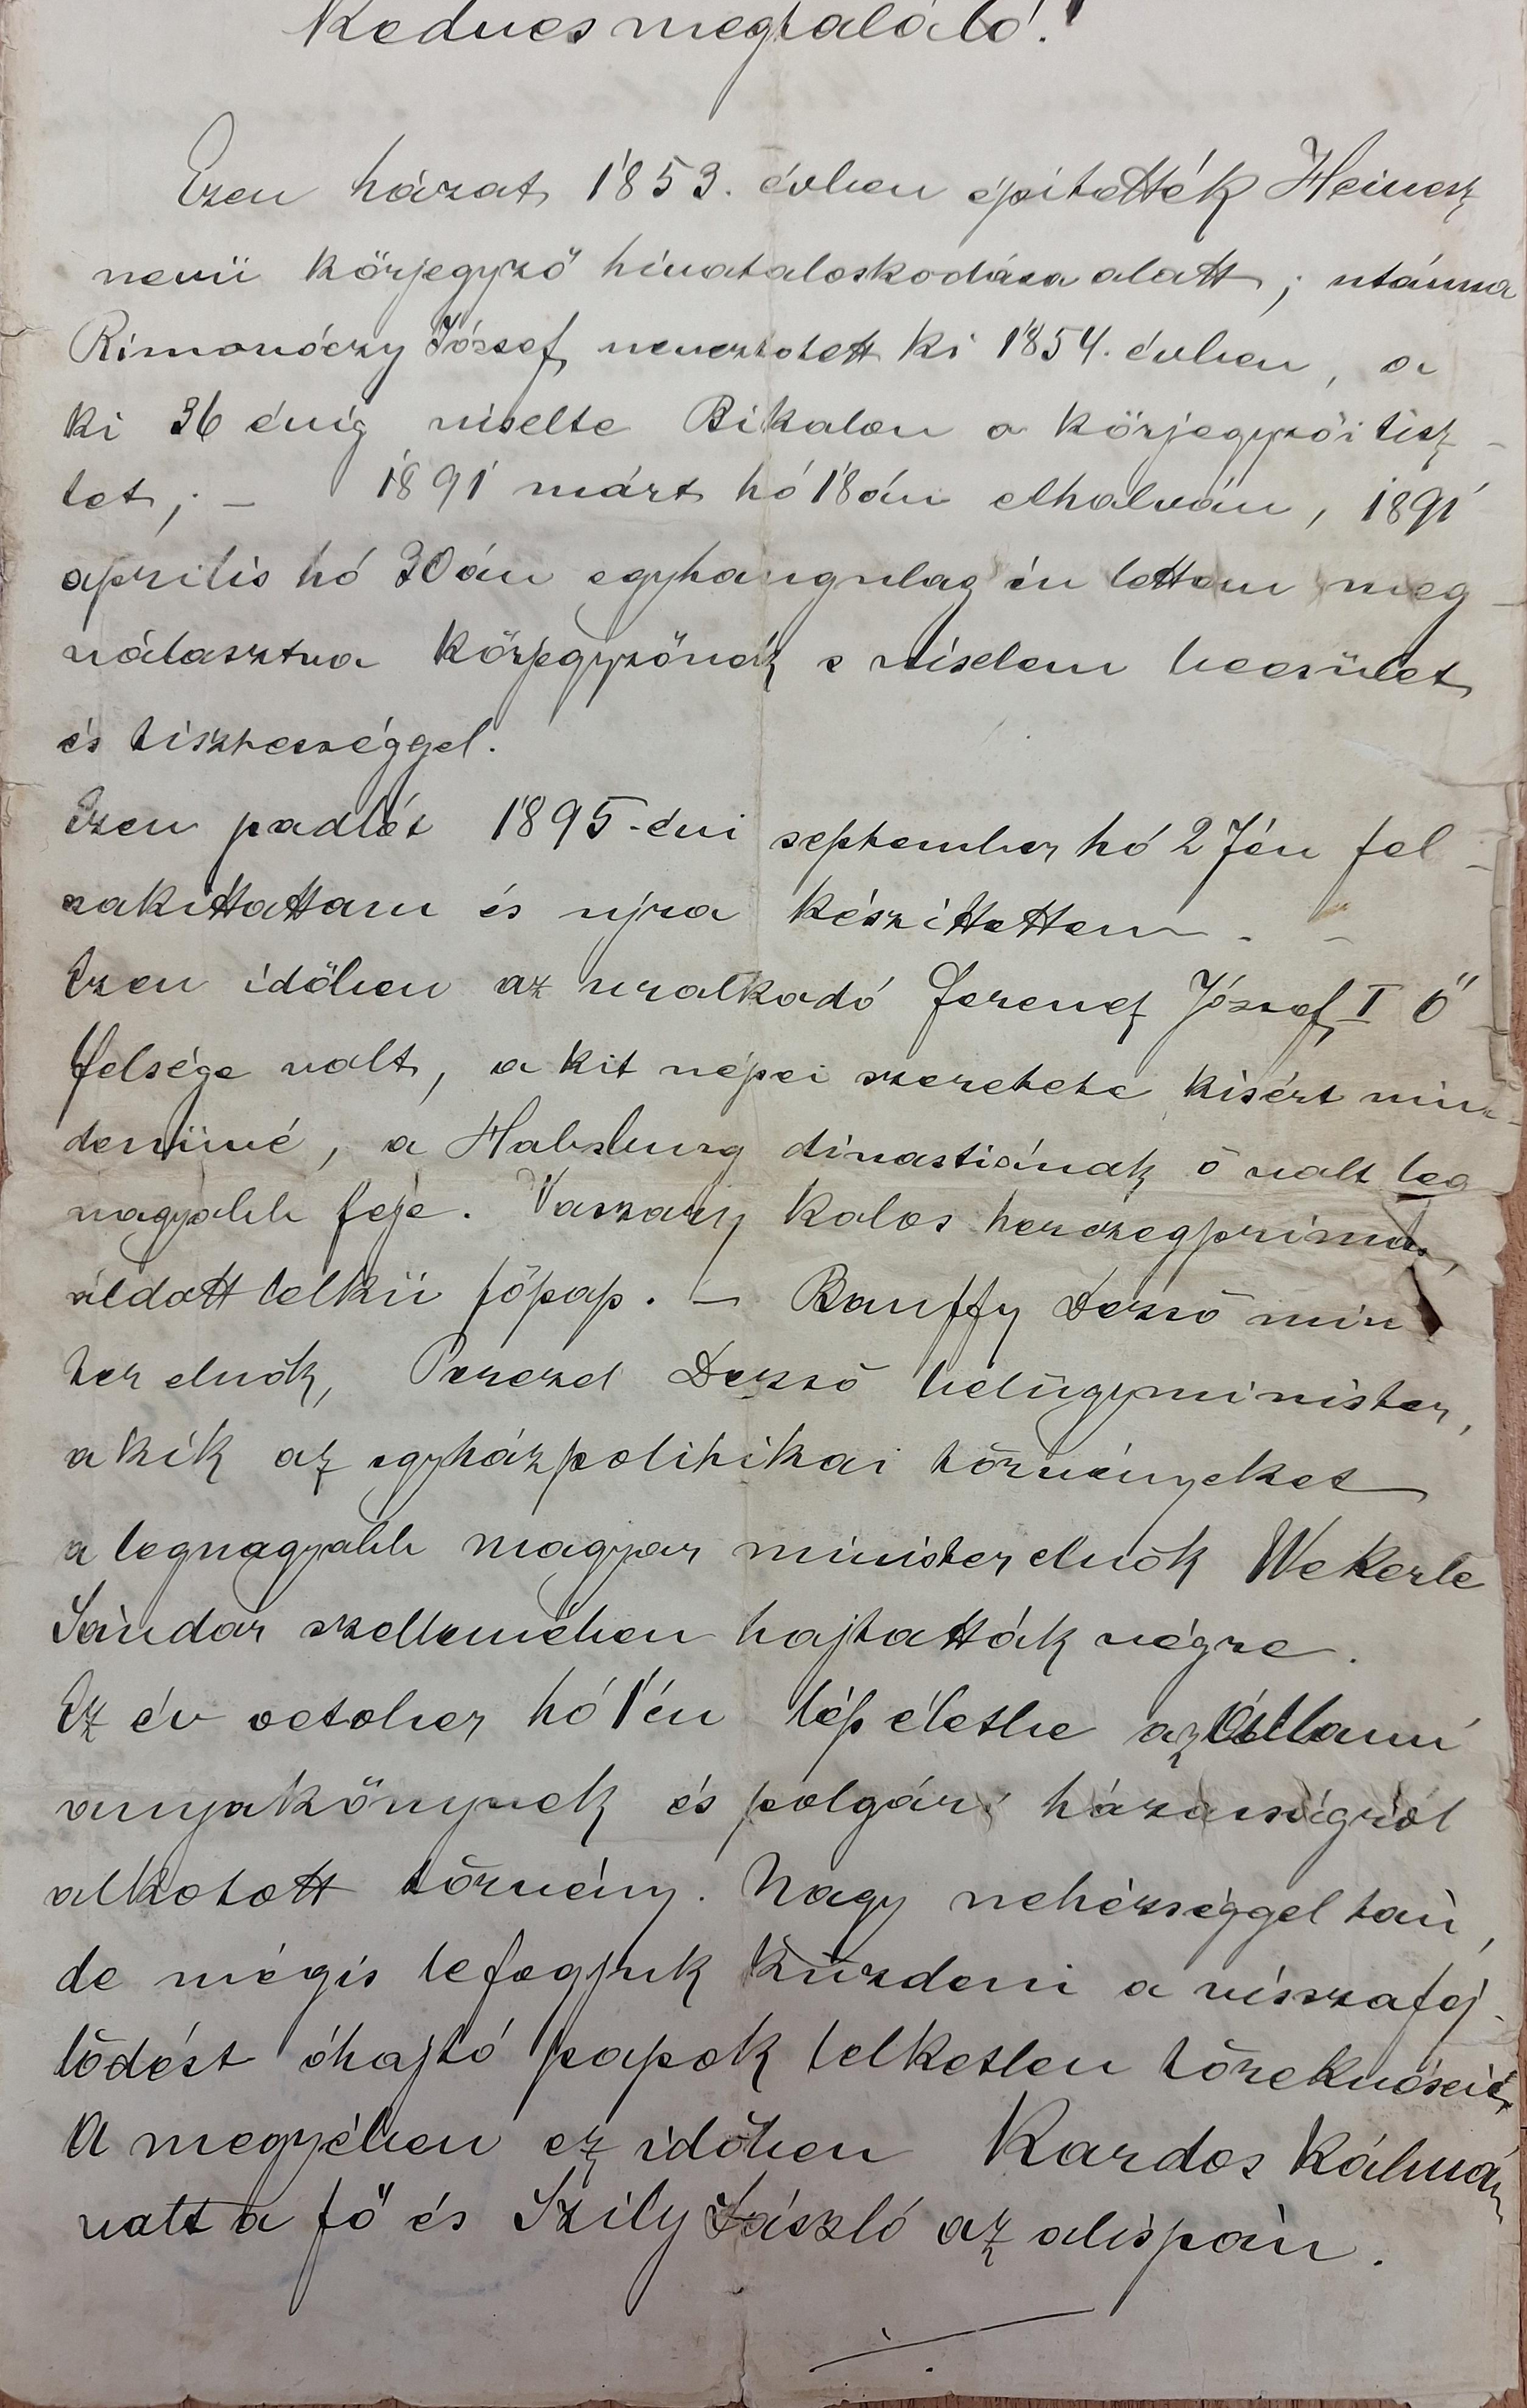 Kedves megtaláló!
Ezen házat 1853. évben épitették Heinesz
nevü körjegyző hivataloskodása alatt; utánna
Rimanóczy József neveztetett ki 1854. évben, a
ki 36 évig viselte Bikalon a körjegyzői tisz-
tet; – 1891 márt hó 18án elhalván, 1891
április hó 30án egyhangulag én lettem meg-
választva körjegyzőnek s viselem becsület
és tisztességgel.
Ezen padlót 1895-évi september hó 27én fel-
szakittattam és ujra készittettem. –
Ezen időben az uralkodó Ferencz József I Ő
felsége valt, a kit népei szeretete kisért min-
denüvé, a Habsburg dinastiának ő valt leg
nagyobb feje. Vaszary Kolos herczegprimás,
áldott lelkü főpap. – Banffy Dezső minis
ter elnök, Perczel Dezső belügyminister,
a kik az egyházpolitikai törvényeket
a legnagyobb magyar ministerelnök Wekerle
Sándor szellemében hajtatták végre.
Ez év october hó 1én lép életbe az Állami
anyakönyvek és polgári házasságról
alkotott törvény. Nagy nehézséggel tán,
de mégis lefogjuk küzdeni a visszafej-
lödést óhajtó papok lelketlen törekvéseit.
A megyében ez időben Kardos Kálmán
valt a fő és Szily László az alispán.